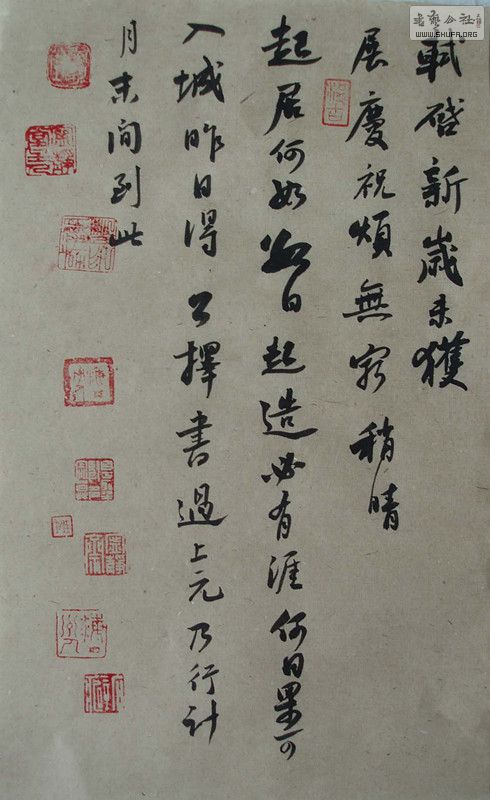 軾啓新歲未獲
展慶祝頌無窮稍晴
起居何如數日起造必有涯何日果可
入城昨日得公擇書過上元乃行計
月末間到此
書藝公社
WWW.SHUFA.ORG